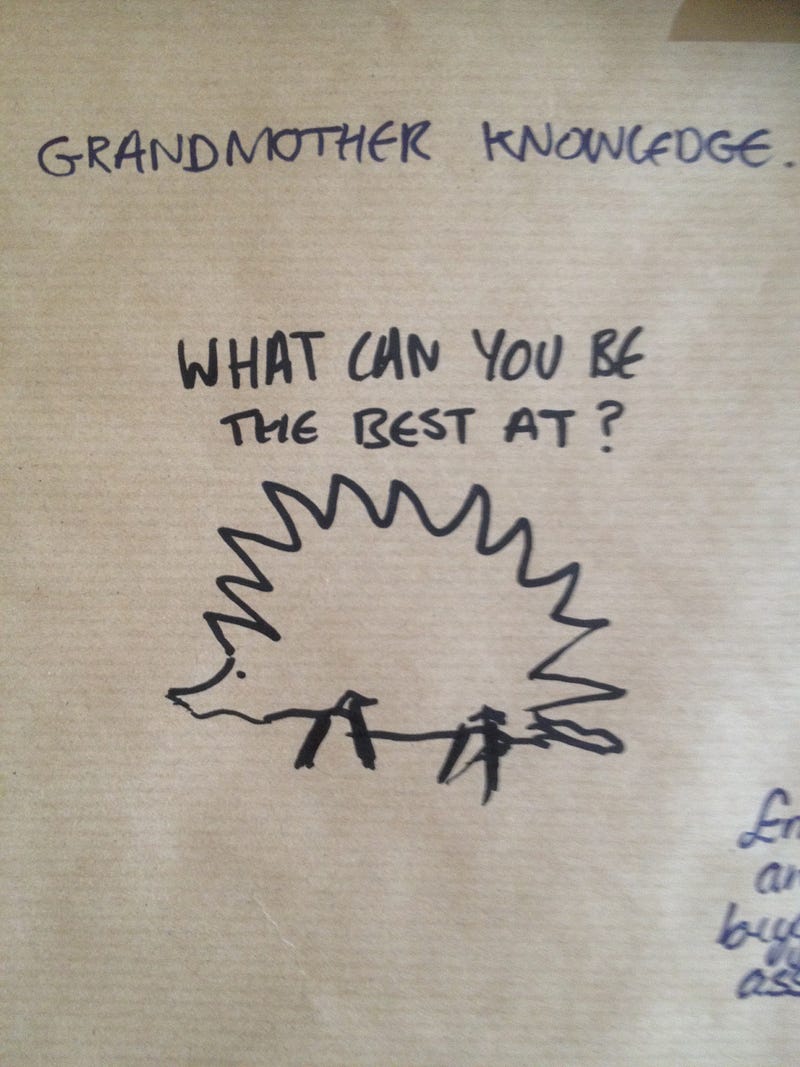 GRANDMOTHER KNOWLEDGE.
WHAT CAN YOU BE
THE BEST AT?